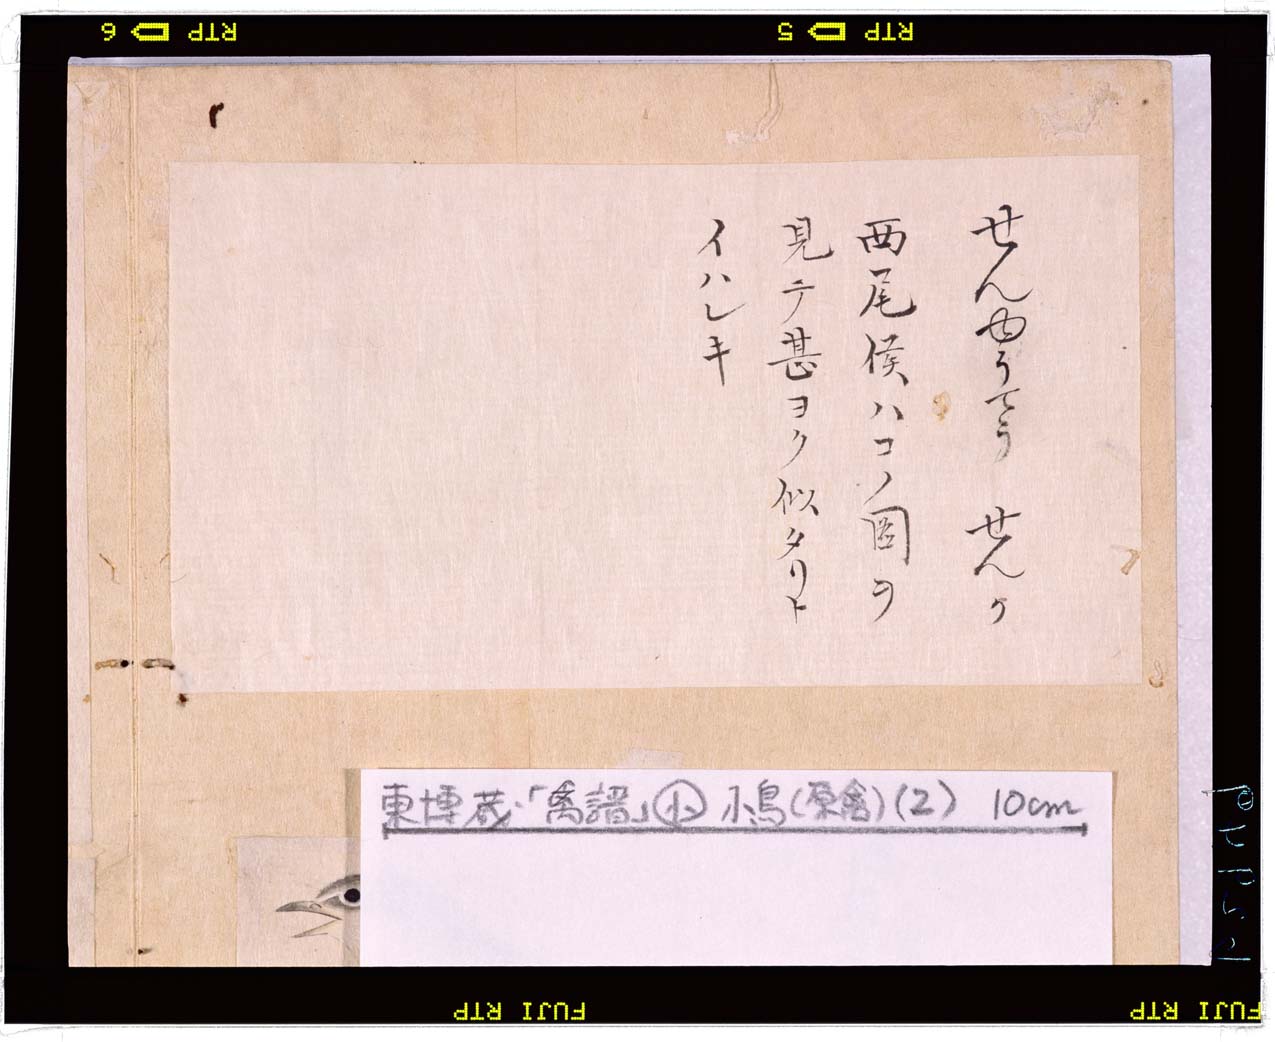 せんゆうてう せんか
西尾侯ハコノ図ヲ
見テ甚ヨク似タリト
イハレキ
東博蔵「禽譜」小 小鳥(原禽)(2) 10cm
RTP 5
RTP 6
FUJI RTP
FUJI RTP